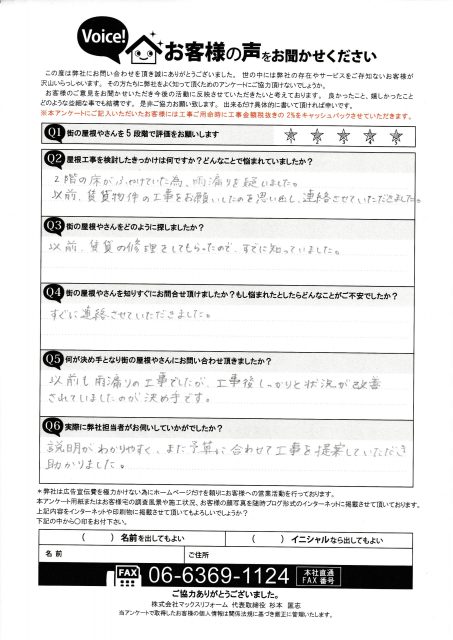 Voice!
お客様の声をお聞かせください
この度は弊社にお問い合わせを頂き誠にありがとうございました。 世の中には弊社の存在やサービスをご存知ないお客様が
沢山いらっしゃいます。 その方たちに弊社をよく知って頂くためのアンケートにご協力頂けないでしょうか。
お客様のご意見をお聞かせいただき今後の活動に反映させていただきたいと考えております。 良かったこと、嬉しかったこと
どのような些細な事でも結構です。 是非ご協力お願い致します。 出来るだけ具体的に書いて頂ければ幸いです。
※本アンケートにご記入いただいたお客様には工事ご用命いただいた時に工事金額税抜きの 2%をキャッシュバックさせていただきます。
Q1 街の屋根やさんを 5 段階で評価をお願いします
★ ★ ★ ★ ★
Q2 屋根工事を検討したきっかけは何ですか？どんなことで悩まれていましたか？
2階の床がふやけていた為、雨漏りを疑いました。
以前、賃貸物件の工事をお願いしたのを思い出し、連絡させていただきました。
Q3 街の屋根やさんをどのように探しましたか？
以前、賃貸の修理をしてもらったので、すでに知っていました。
Q4 街の屋根やさんを知りすぐにお問合せ頂けましたか？もし悩まれたとしたらどんなことがご不安でしたか？
すぐに連絡させていただきました。
Q5 何が決め手となり街の屋根やさんにお問い合わせ頂きましたか？
以前も雨漏りの工事でしたが、工事後しっかりと状況が改善
されていましたのが決め手です。
Q6 実際に弊社担当者がお伺いしていかがでしたか？
説明がわかりやすく、また予算に合わせて工事を提案していただき
助かりました。
＊弊社は広告宣伝費を極力かけない為にホームページだけを頼りにお客様への営業活動を行っております。
本アンケート用紙またはお客様宅の調査風景や施工状況、お客様の顔写真を随時ブログ形式のインターネットに掲載させて頂いております。
上記内容をインターネットや印刷物に掲載させて頂いてもよろしいでしょうか？
下記の中から〇印をお付下さい。
（　　）名前を出してもよい （　　）イニシャルなら出してもよい
名 前 ご住所
FAX 06-6369-1124 本社直通 FAX 番号
ご協力ありがとうございました。
株式会社マックスリフォーム 代表取締役 杉本 匡志
当アンケートで取得したお客様の個人情報は関係法規に基づき厳正に管理いたします。